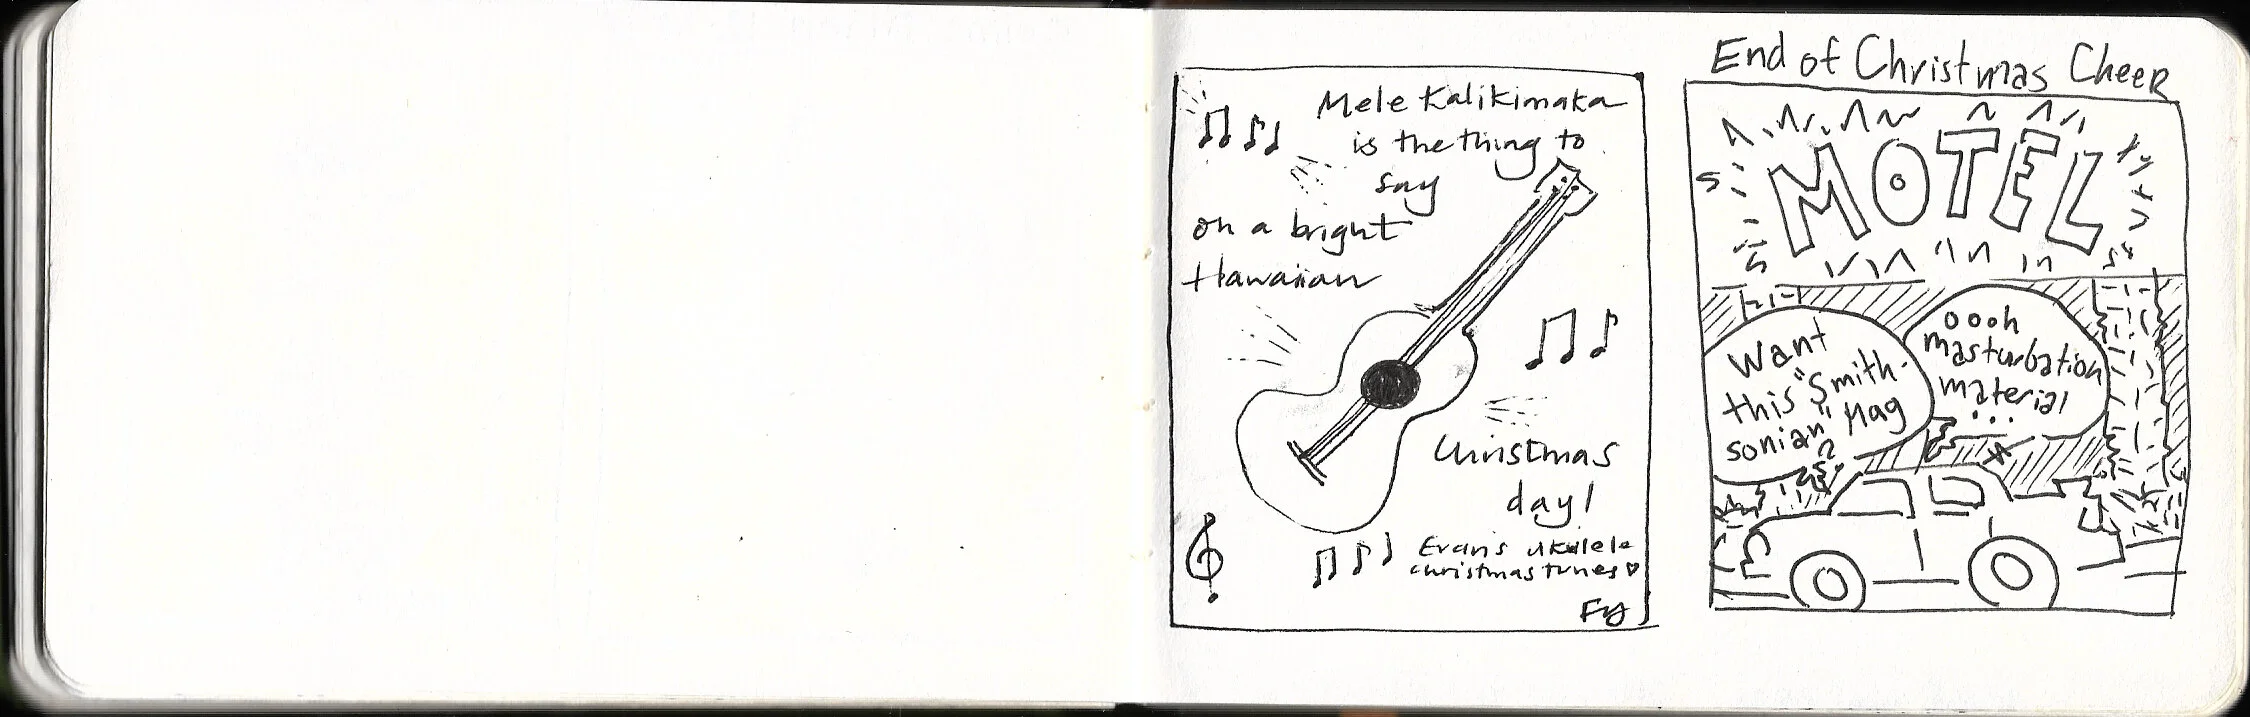 Mele Kalikimaka
is the thing to
say
on a bright
Hawaiian
Christmas
day!
Evan's ukulele
christmas tunes ♡
Fy
End of Christmas Cheer
MOTEL
Want
this "Smith-
sonian" Mag
?
oooh
masturbation
material
...